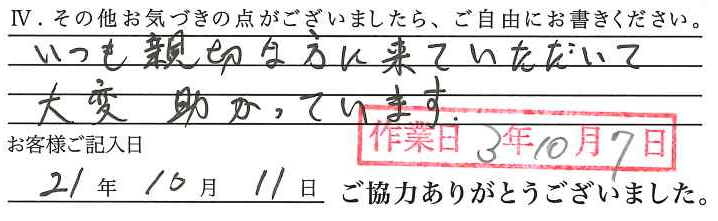 Ⅳ．その他お気づきの点がございましたら、ご自由にお書きください。
いつも親切な方に来ていただいて
大変 助かっています.
作業日 3年10月7日
お客様ご記入日
21年 10月 11日 ご協力ありがとうございました。